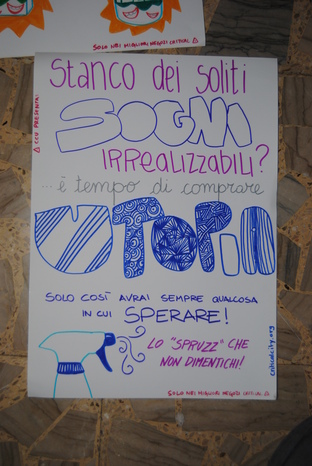 SOLO NEI MIGLIORI NEGOZI CRITICAL
CCU PRESENTA:
Stanco dei soliti
SOGNI
IRREALIZZABILI?
...è tempo di comprare
UTOPIA
SOLO COSÌ AVRAI SEMPRE QUALCOSA
IN CUI SPERARE!
LO "SPRUZZ" CHE
NON DIMENTICHI!
criticalcity.org
SOLO NEI MIGLIORI NEGOZI CRITICAL